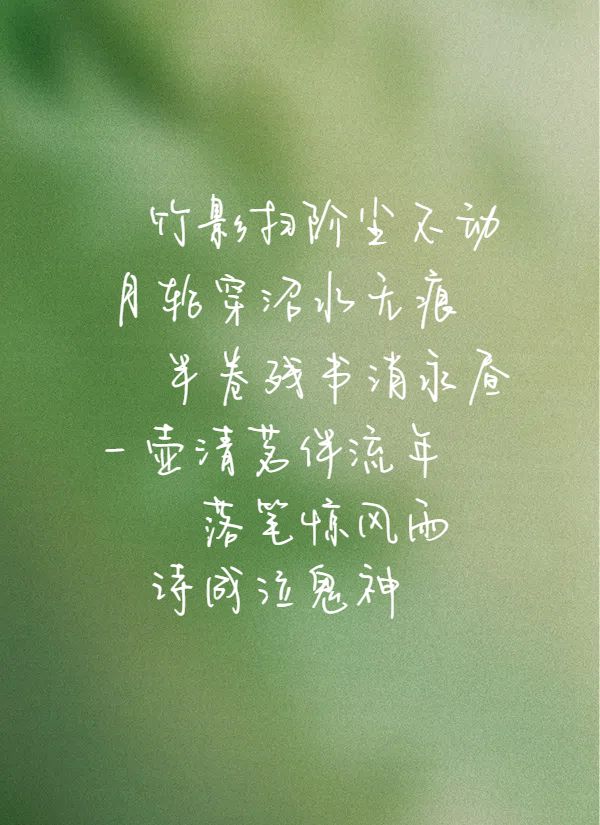 竹影扫阶尘不动
月轮穿沼水无痕
半卷残书消永昼
一壶清茗伴流年
落笔惊风雨
诗成泣鬼神